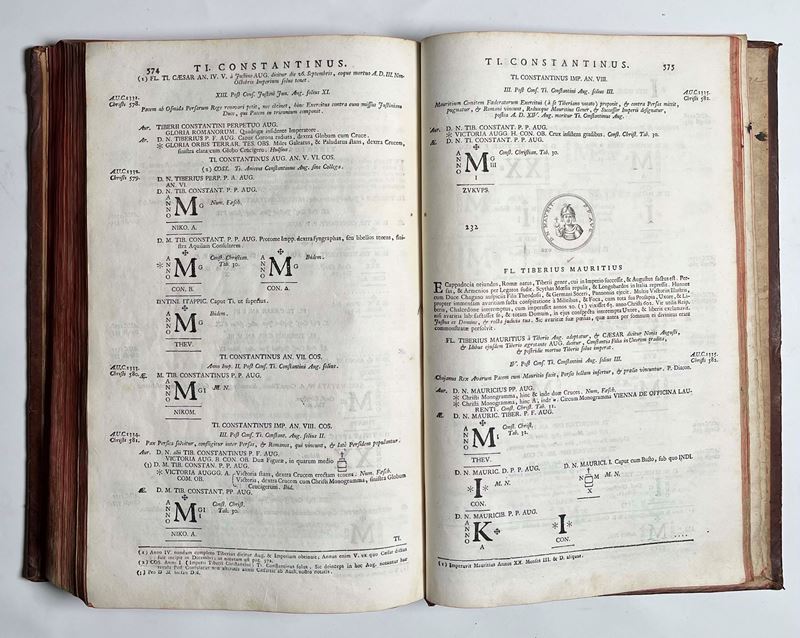 574
TI. CONSTANTINUS.
(1) FL. TI. CÆSAR AN. IV. V. à Justino AUG. dicitur die 26. Septembris, eoque mortuo A. D. III. Non.
Octobris Imperium solus tenet.
XIII. Post Conf. Justini Jun. Aug. solius XI.
A.U.C. 1331.
Christi 578.
Pacem ab Osmida Persarum Rege renovari petit, nec obtinet, hinc Exercitus contra eum missus Justiniano
Duce, qui Pacem ex triumpham
Aur. TIBERII CONSTANTINI PERPETUO AUG.
GLORIA ROMANORUM. Quadriga insidente Imperatore.
Ar. D. N. TIBERIUS P. F. AUG. Caput Corona radiata, dextra Globum cum Cruce.
GLORIA ORBIS TERRAR. TES. OB. Miles Galeatus, & Paludatus stans, dextra Crucem,
sinistra elata cum Globo Crucigero. Hulsius.
TI. CONSTANTINUS AUG. AN. V. VI. COS.
(2) COSS. Ti. Anicius Constantinus Aug. sine Collega.
A.U.C. 1332.
Christi 579.
D. N. TIBERIUS PERP. P. A. AUG.
AN. VI
D. N. TIB. CONSTANT. P. P. AUG.
ANNO M G Num. Fasch.
NIKO. A.
D. M. TIB. CONSTANT. P. P. AUG. Protome Impp. dextra syngraphas, seu libellos tenens, sinistra
Aquilam Consulorem.
ANNO M G Const. Christian. Tab. 30.
ANNO M G Ibidem.
CON. B.
CON. Δ.
Caput Ti. ut superius.
ANNO M G Ibidem.
THEV.
TI. CONSTANTINUS AN. VII. COS.
Anno Imp. II. Post Conf. Ti. Constantini Aug. solius.
A.U.C. 1333.
Christi 580.
Æ. M. TIB. CONSTANTINUS P. P. AUG.
ANNO M GI M. N.
NIKOM.
TI. CONSTANTINUS IMP. AN. VIII. COS.
III. Post Conf. Ti. Constant. Aug. solius II.
A.U.C. 1334.
Christi 581.
Pax Persica solvitur, confligitur inter Persas, & Romanos, qui vincunt, & latè Persidem populantur.
Aur. D. N. alii TIB. CONSTANTINUS P. F. AUG.
VICTORIA AUG. B. CON. OB. Duæ Figuræ, in quarum medio
(3) D. M. TIB. CONSTAN. P. P. AUG.
VICTORIA AUGGG. A. Victoria stans, dextra Crucem erectam tenens. Num. Fasch.
COM. OB. Victoria, dextra Crucem cum Christi Monogramma, sinistra Globum
Crucigerum. Ibid.
Æ. D. M. TIB. CONSTANT. PP. AUG.
ANNO M GI Const. Christ. Tab. 30.
NIKO. A.
TI.
(1) Anno IV. nondum completo Tiberius dicitur Aug. & Imperium obtinuit. Annus enim V. ex quo Cæsar dictus
fuit incipit in Decembri, ut notatum est pag. 572.
(2) COS. Anno I. (Imperii Tiberii Constantini) Ti. Constantinus solus. Sic deinceps in hoc Aug. notantur
(3) Pro D. N.
TI. CONSTANTINUS.
575
TI. CONSTANTINUS IMP. AN. VIII.
III. Post Conf. Ti. Constantini Aug. solius III.
A.U.C. 1335.
Christi 582.
Mauritium Comitem Fœderatorum Exercitui (à se Tiberiano vocato) proponit, & contra Persas mittit,
pugnatur, & Romani vincunt, Reducemque Mauritius Gener, & Successor Imperii designatur,
postea A. D. XIX. Aug. moritur Ti. Constantinus Aug.
Aur. D. N. TIB. CONSTANT. P. P. AUG.
VICTORIA AUGG. H. CON. OB. Crux insidens gradibus. Const. Christ. Tab. 30.
Æ. D. N. TI. CONSTANT. P. P. AUG.
ANNO M G III Const. Christian. Tab. 30.
I
ZVKVPS.
232
FL. TIBERIUS MAURITIUS
E Cappadocia oriundus, Romæ natus, Tiberii Gener, eui in Imperio successit, & Augustus factus est. Persas,
& Armenios per Legatos fudit. Scythas Mœsia repulit, & Longobardos in Italia repressit. Hunnos
cum Duce Chagano auspiciis Filii Theodosii, & Germani Soceri, Pannonia ejecit. Multis Victoriis illustris,
propter immensam avaritiam facta conspiratione à Militibus, & Foca, cum tota sua Prosapia, Uxore, & Liberis,
Chalcedone interemptus, cum imperasset annos 20. (1) vixisset 63. anno Christi 602. Vir unius Religionis,
nisi avaritia labefactasset se, & totum Domum, in ejus conspectu interempta Uxore, & liberis exclamans,
Justus es Domine, & recta judicia tua. Sic avaritiæ suæ pœnas, quas antea per somnum ei divinitus erant
commonstratæ persolvit.
FL. TIBERIUS MAURITIUS à Tiberio Aug. adoptatur, & CÆSAR dicitur Nonis Augusti,
& Idibus ejusdem Tiberio ægrotante AUG. dicitur, Constantia Filia in Uxorem tradita,
& postridie mortuo Tiberio solus imperat.
IV. Post Conf. Ti. Constantini Aug. solius III.
A.U.C. 1335.
Christi 582.
Chajanus Rex Avarum Pacem cum Mauritio facit, Persis bellum infertur, & prælio vincuntur. P. Diacon.
Aur. D. N. MAURICIUS PP. AUG.
Christi Monogramma, hinc & inde duæ Cruces. Num. Fasch.
Christi Monogramma, hinc A, inde ω. Circum Monogramma VIENNA DE OFFICINA LAURENTI.
Const. Christ. Tab. 31.
Æ. D. N. MAURIC. TIBER. P. F. AUG.
ANNO M I Const. Christ. Tab. 32.
THEV.
D. N. MAURIC. D. P. P. AUG.
I M. N.
CON.
D. N. MAURICI. I. Caput cum Busto, sub quo INDI.
N M M. N.
X
D. N. MAURICIB. P. P. AUG.
ANNO K
A
I
CON.
(1) Imperavit Mauritius Annos XX. Menses III. & D. aliquot.
D N MAVRIT